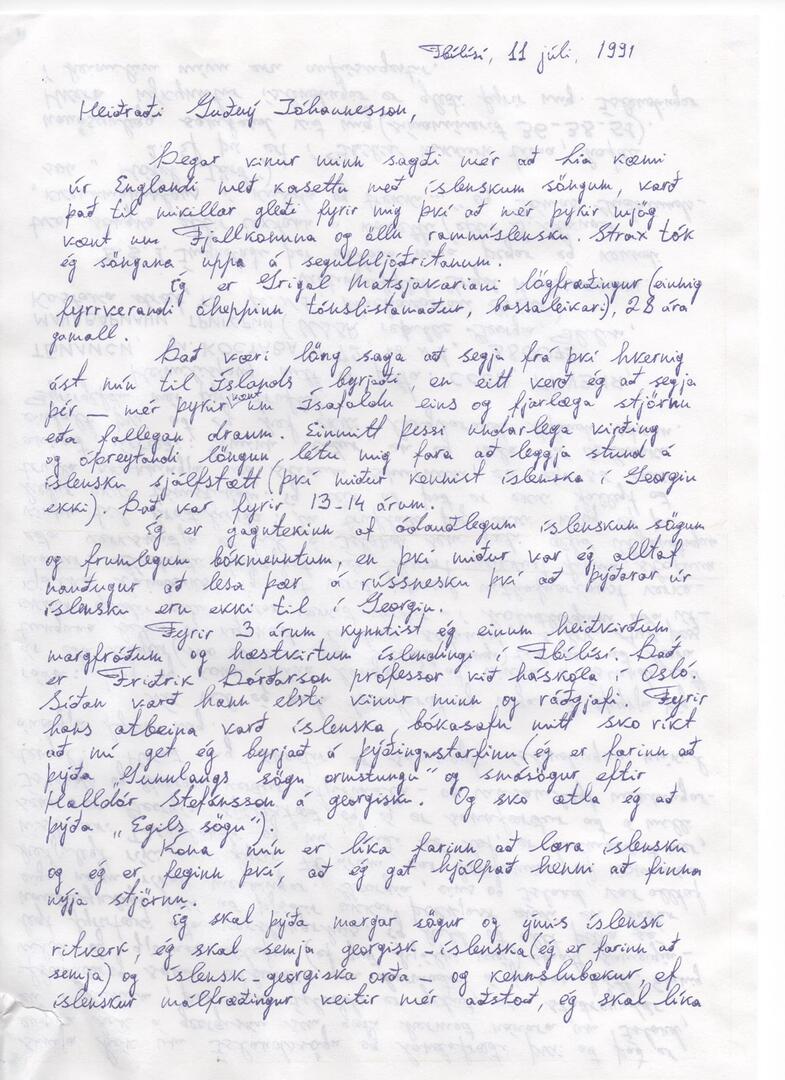 Tbilisi, 11 júlí, 1991
Heiðraði Guðný Jóhannesson,
Þegar vinur minn sagði mér að Lia kæmi
úr Englandi með kasettu með íslenskum söngum, varð
það til mikillar gleði fyrir mig því að mér þykir mjög
vænt um Fjallkonuna og öllu rammíslensku. Strax tók
ég söngana uppa á segulhljóðritanum.
Ég er Grigal Matsjavariani lögfræðingur (einnig
fyrrverandi óheppinn tónslistamaður, bassaleikari), 28 ára
gamall.
Það væri löng saga að segja frá því hvernig
ást mín til Íslands byrjaði, en eitt verð ég að segja
þér — mér þykir vænt um Ísafoldu eins og fjarlæga stjörnu
eða fallegan draum. Einmitt þessi undarlega virðing
og óþreytandi löngun létu mig fara að leggja stund á
íslensku sjálfstætt (því miður kennist íslenska í Georgíu
ekki). Það var fyrir 13-14 árum.
Ég er gagntekinn af ódauðlegum íslenskum sögum
og frumlegum bókmenntum, en því miður var ég alltaf
nauðugur að lesa þær á rússnesku því að þýðarar úr
íslensku eru ekki til í Georgíu.
Fyrir 3 árum kynntist ég einum heiðvirðum
margfróðum og hæstvirtum íslendingi í Tbilisi. Það
er Friðrik Þórðarson prófessor við háskóla í Osló.
Síðan varð hann elsti vinur minn og ráðgjafi. Fyrir
hans atbeina varð íslenska bókasafn mitt svo ríkt
að nú get ég byrjað á þýðingustarfinu (ég er farinn að
þýða „Gunnlaugs sögu ormstungu" og smásögur eftir
Halldór Stefánsson á georgísku. Og svo ætla ég að
þýða „Egils sögu").
Kona mín er líka farinn að læra íslensku
og ég er feginn því, að ég gat hjálpað henni að finna
nýja stjörnu.
Ég skal þýða margar sögur og ýmis íslensk
ritverk, ég skal semja georgísk-íslenska (ég er farinn að
semja) og íslensk-georgíska orða- og kennslubækur, ef
íslenskur málfræðingur veitir mér aðstoð, ég skal líka